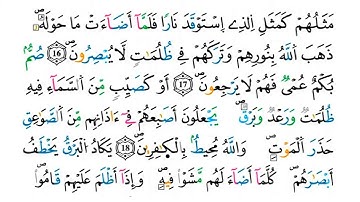 مَثَلُهُمْ كَمَثَلِ اِ۬لذِے اِ۪سْتَوْقَدَ نَاراٗ فَلَمَّآ أَضَآءَتْ مَا حَوْلَهُۥ
ذَهَبَ اَ۬للَّهُ بِنُورِهِمْ وَتَرَكَهُمْ فِے ظُلُمَٰتٖ لَّا يُبْصِرُونَ 16 صُمُّۢ
بُكْمٌ عُمْيٞ فَهُمْ لَا يَرْجِعُونَ 17 أَوْ كَصَيِّبٖ مِّنَ اَ۬لسَّمَآءِ فِيهِ
ظُلُمَٰتٞ وَرَعْدٞ وَبَرْقٞ يَجْعَلُونَ أَصَٰبِعَهُمْ فِےٓ ءَاذَانِهِم مِّنَ اَ۬لصَّوَٰعِقِ
حَذَرَ اَ۬لْمَوْتِ وَاللَّهُ مُحِيطُۢ بِالْكٰ۪فِرِينَ 18 يَكَادُ اُ۬لْبَرْقُ يَخْطَفُ
أَبْصَٰرَهُمْ كُلَّمَآ أَضَآءَ لَهُم مَّشَوْاْ فِيهِ وَإِذَآ أَظْلَمَ عَلَيْهِمْ قَامُواْ